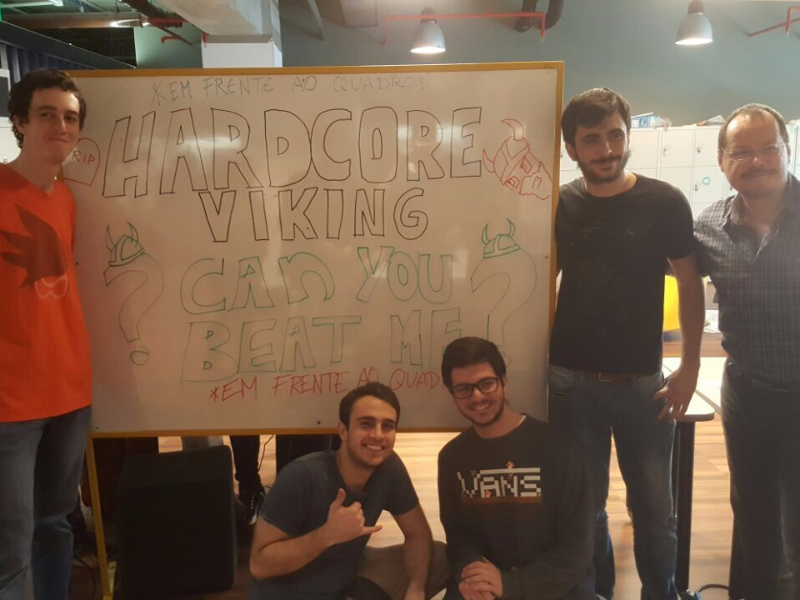 *EM FRENTE AO QUADRO*
RIP
HARDCORE
VIKING
? CAN YOU ?
BEAT ME
*EM FRENTE AO QUAD
VANS